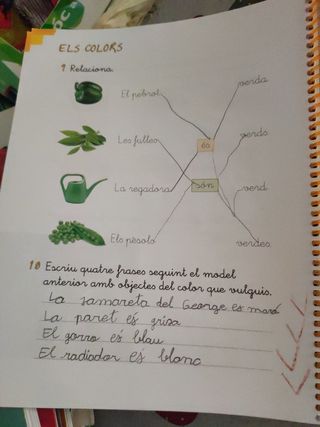 ELS COLORS
9 Relaciona.
El pebrot
verda
és
Les fulles
verds
La regadora
són
verd
Els pèsols
verdes
10 Escriu quatre frases seguint el model
anterior amb objectes del color que vulguis.
La samareta del George es maró
La paret és grisa
El gorro és blau
El radiador és blanc